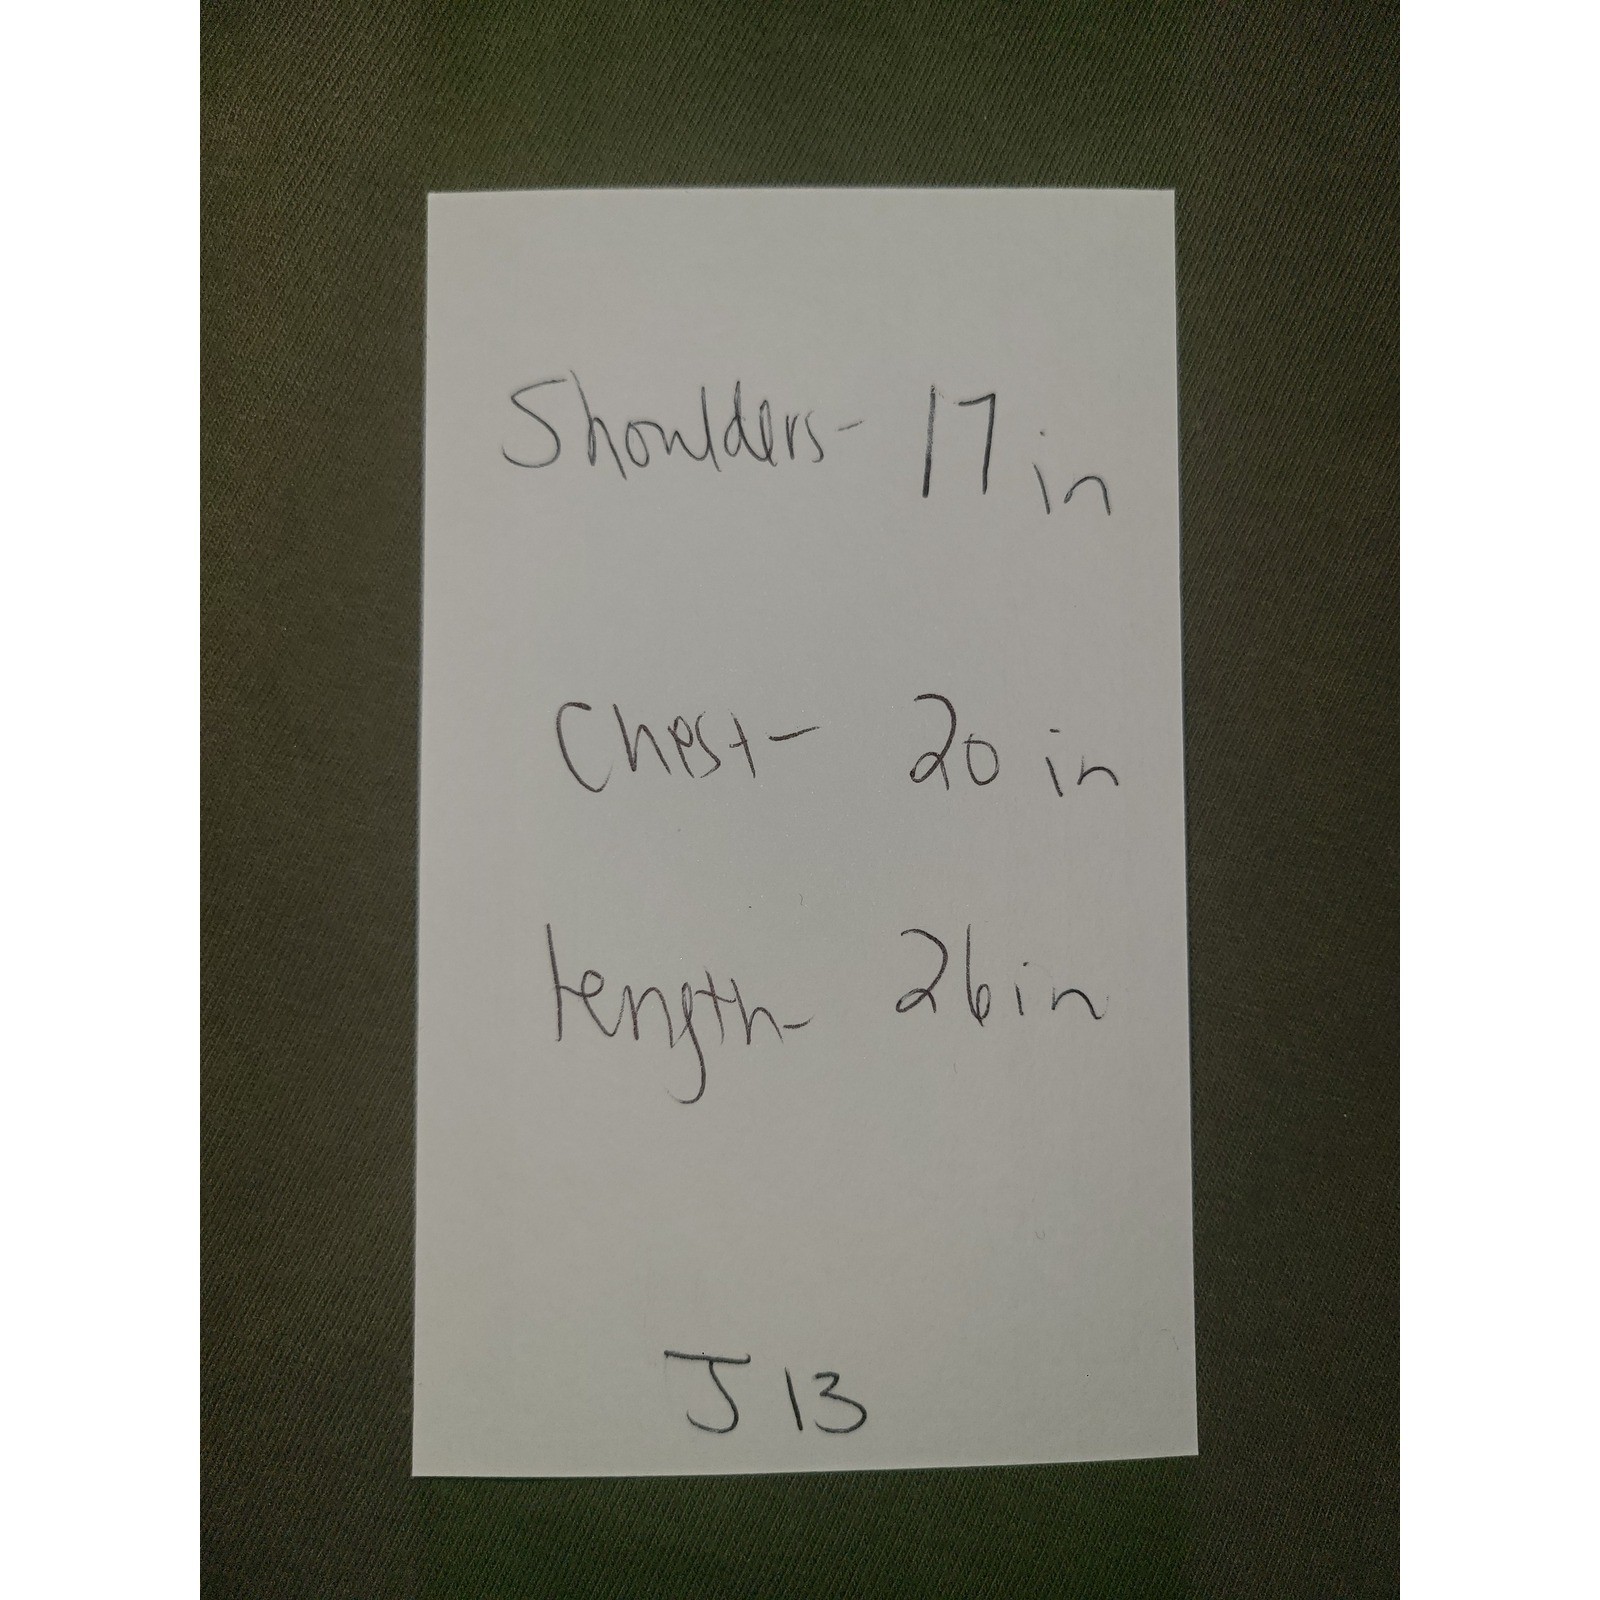 Shoulders- 17 in
Chest- 20 in
Length- 26 in
J 13